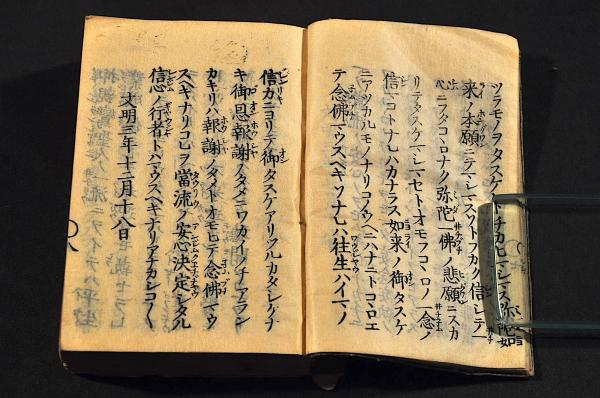 ツラモノヲタスケントチカヒマシマス弥陀如
来ノ本願ニテマシマスソトフカク信シテ一
心ニフタコヽロナク弥陀一佛ノ悲願ニスカ
リテタスケマシマセトオモフコヽロノ一念ノ
信マコトナレハカナラス如来ノ御タスケ
ニアツカルモノナリコノウヘニハナニトコヽロエ
テ念佛マウスヘキソナレハ往生ハイマノ
信力ニヨリテ御タスケアリツルカタシケナ
キ御恩報謝ノタメニワカイノチアラン
カキリハ報謝ノタメトオモヒテ念佛マウ
スヘキナリコレヲ當流ノ安心決定シタル
信心ノ行者トハマウスヘキナリアナカシコ〱
文明三年十二月十八日